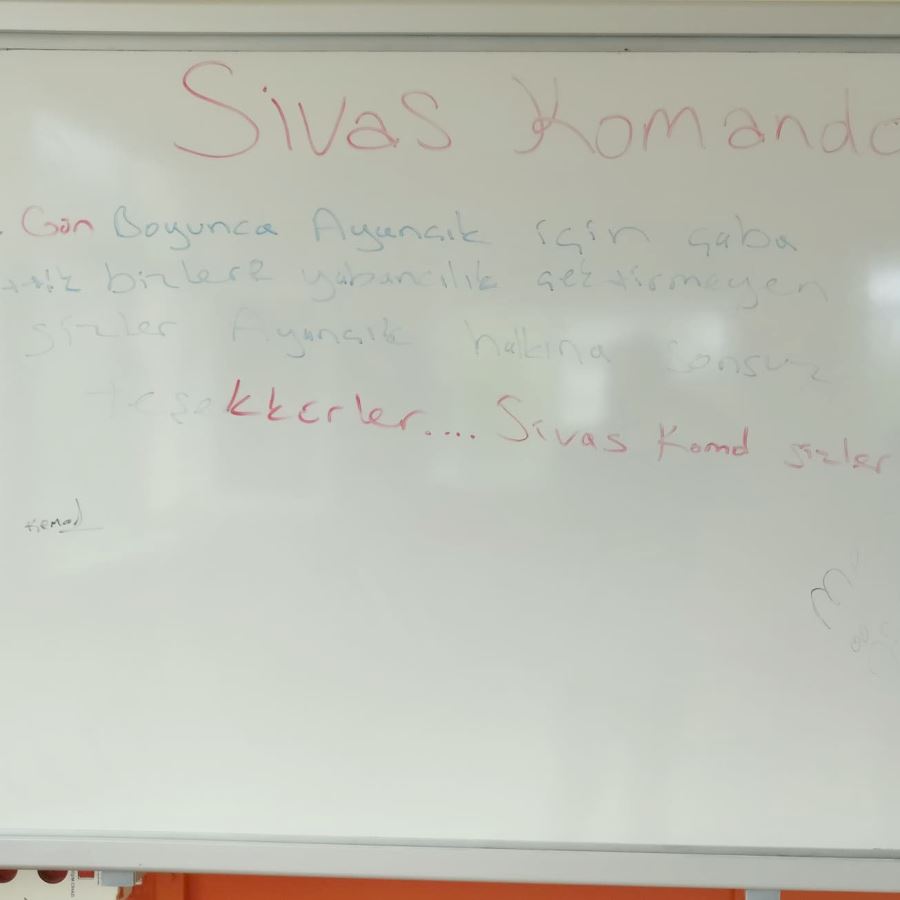 Sivas Komando
Gün Boyunca Ayancık için çaba
bizlere yabancılık çektirmeyen
sizler Ayancık halkına sonsuz
teşekkerler.... Sivas Komd sizler
Kemal